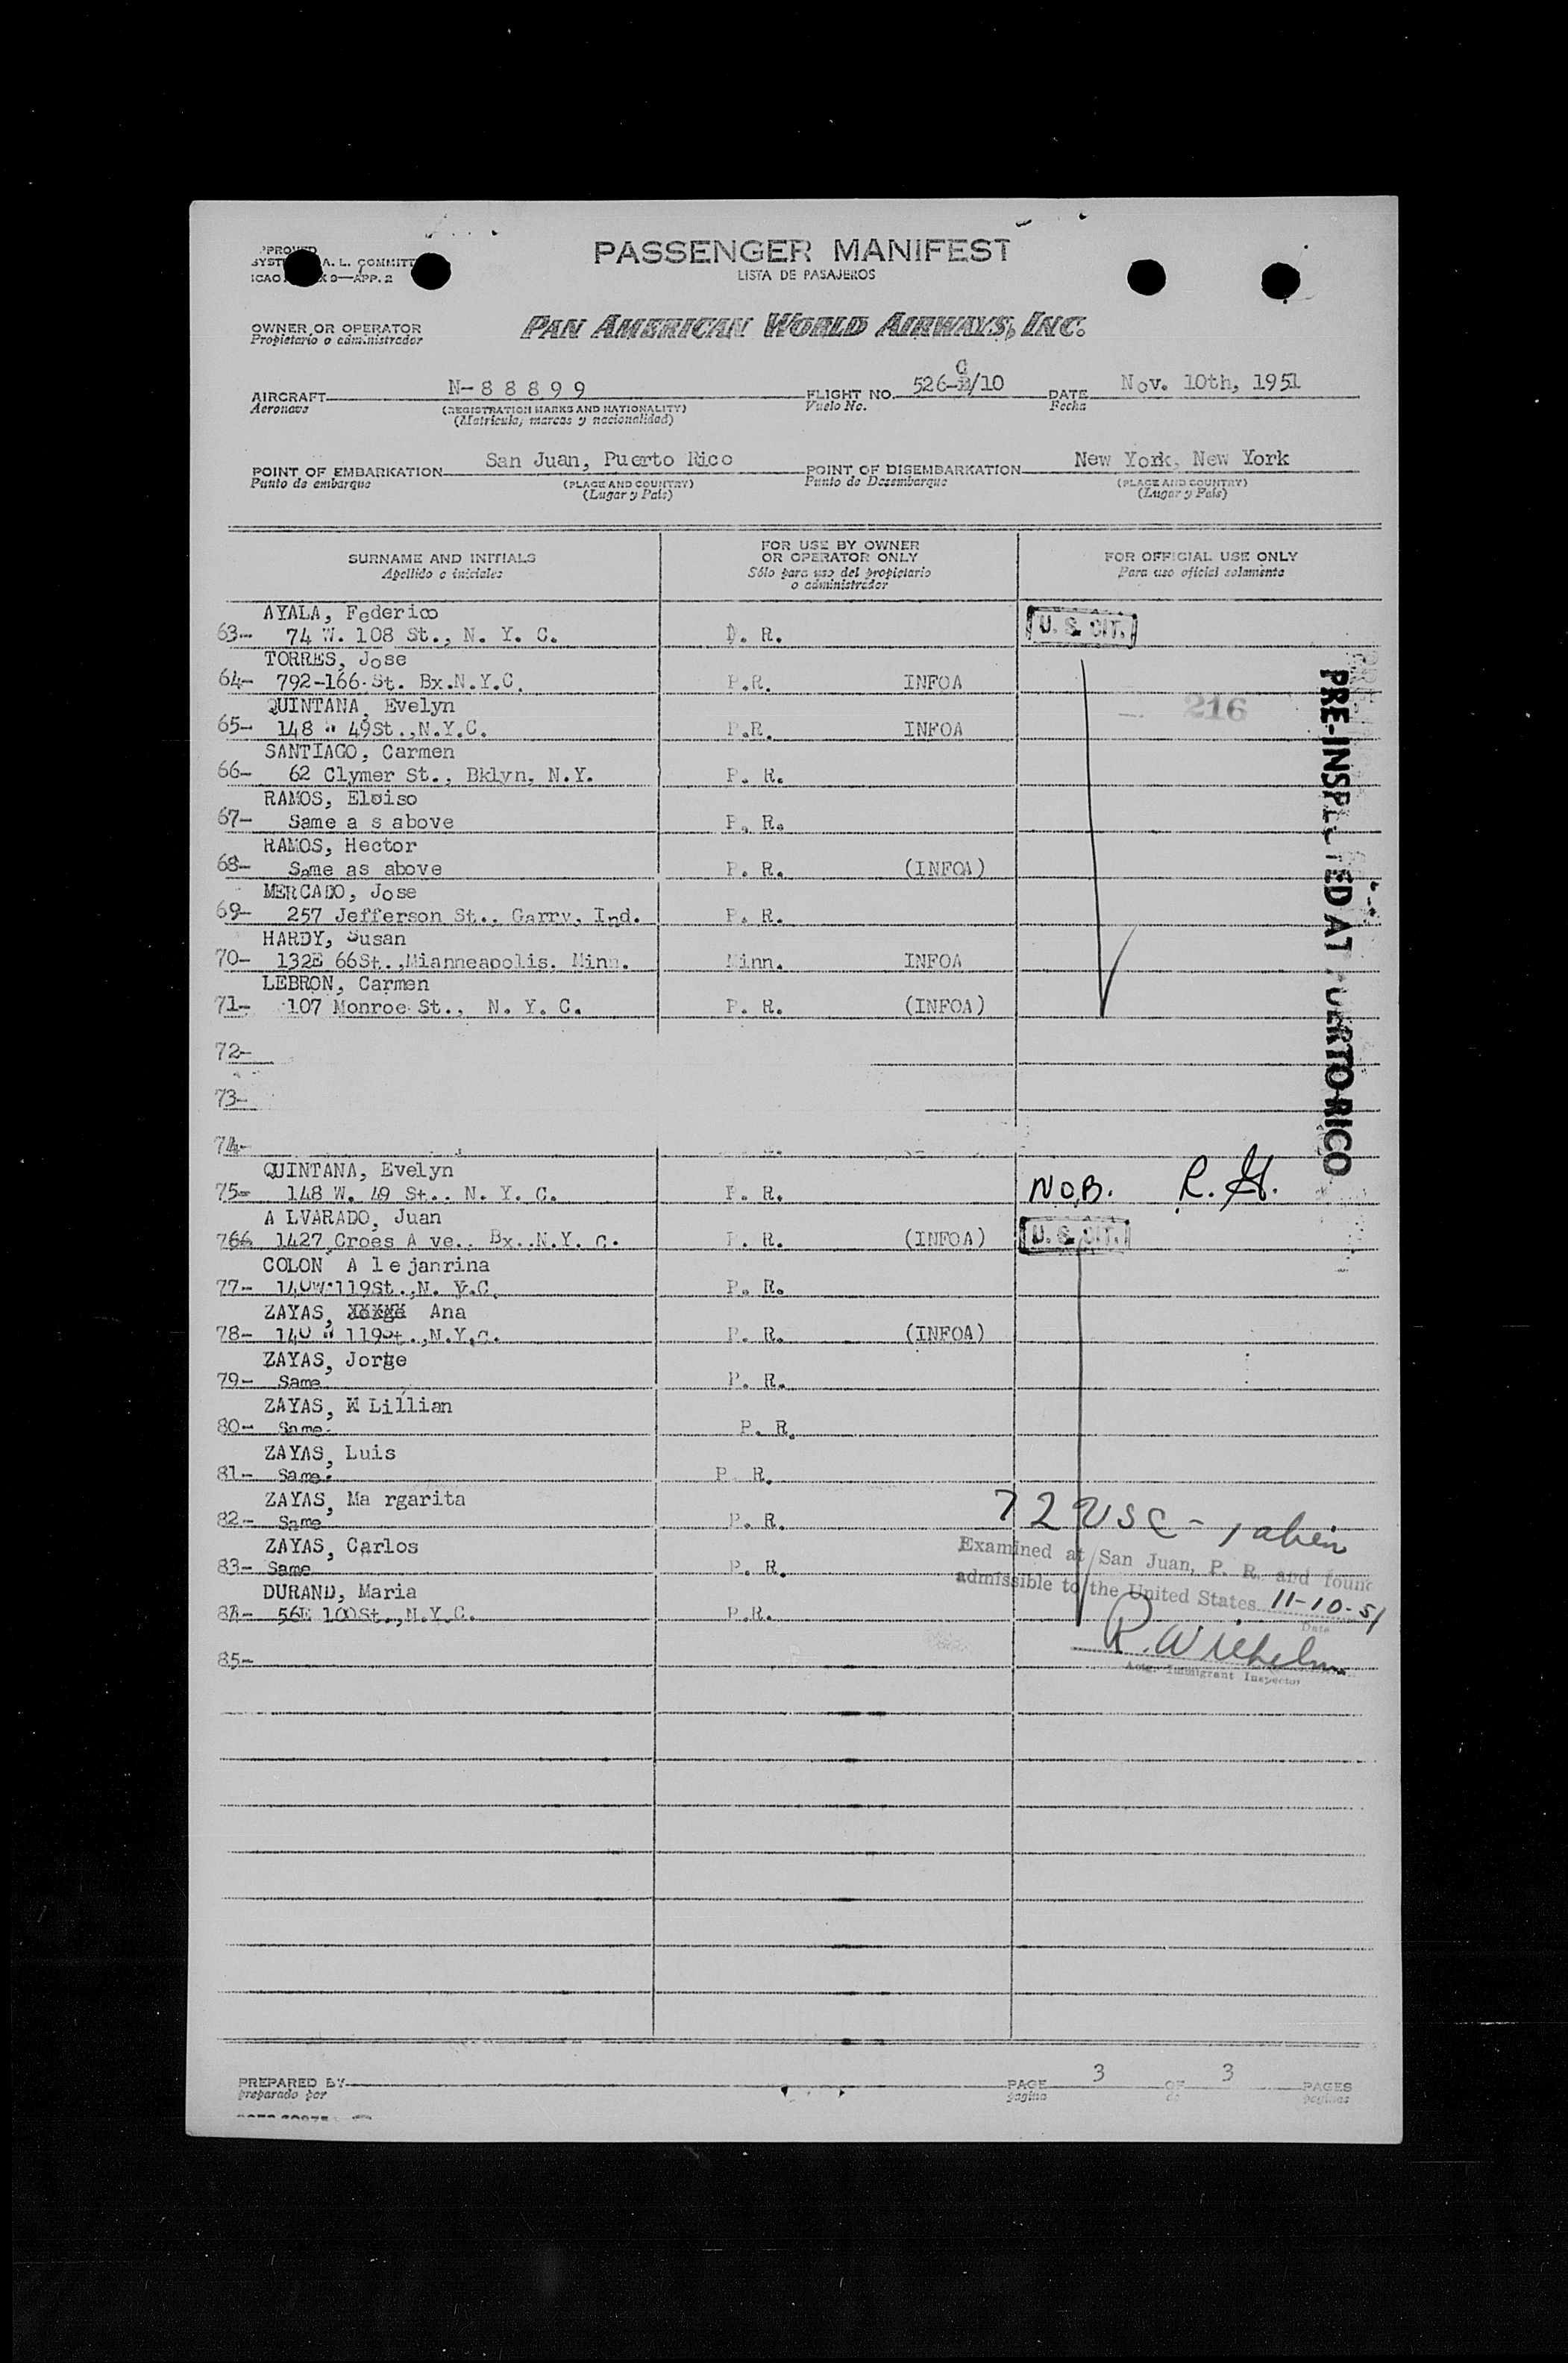 PASSENGER MANIFEST
LISTA DE PASAJEROS
A. L. COMMITT
ICAO 9—APP. 2
OWNER OR OPERATOR
Propietario o administrador
PAN AMERICAN WORLD AIRWAYS, INC.
AIRCRAFT N-88899 FLIGHT NO. 526-B/10 C DATE Nov. 10th, 1951
Aeronave (REGISTRATION MARKS AND NATIONALITY) Vuelo No. Fecha
(Matricula, marcas y nacionalidad)
POINT OF EMBARKATION San Juan, Puerto Rico POINT OF DISEMBARKATION New York, New York
Punto de embarque (PLACE AND COUNTRY) Punto de Desembarque (PLACE AND COUNTRY)
(Lugar y País) (Lugar y País)
SURNAME AND INITIALS FOR USE BY OWNER OR OPERATOR ONLY FOR OFFICIAL USE ONLY
Apellido e iniciales Sólo para uso del propietario o administrador Para uso oficial solamente
AYALA, Federico
63- 74 W. 108 St., N. Y. C. D. R. U. S. CIT.
TORRES, Jose
64- 792-166 St. Bx.N.Y.C. P.R. INFOA
QUINTANA, Evelyn 216
65- 148 W 49St.,N.Y.C. P.R. INFOA
SANTIAGO, Carmen
66- 62 Clymer St., Bklyn, N.Y. P. R.
RAMOS, Eloiso
67- Same a s above P. R.
RAMOS, Hector
68- Same as above P. R. (INFOA)
MERCADO, Jose
69- 257 Jefferson St., Garry, Ind. P. R.
HARDY, Susan
70- 132E 66St.,Mianneapolis, Minn. Minn. INFOA
LEBRON, Carmen
71- 107 Monroe St., N. Y. C. P. R. (INFOA)
72-
73-
74-
PRE-INSPECTED AT PUERTO RICO
QUINTANA, Evelyn
75- 148 W. 49 St., N. Y. C. P. R. NOB. R. H.
A LVARADO, Juan
766 1427 Croes A ve., Bx..N.Y. C. P. R. (INFOA) U. S. CIT.
COLON A l e janrina
77- 140W 119St.,N. Y.C. P. R.
ZAYAS, Jorge Ana
78- 140 W 119St.,N.Y.C. P. R. (INFOA)
ZAYAS, Jorge
79- Same P. R.
ZAYAS, Lillian
80- Same. P. R.
ZAYAS, Luis
81- Same. P R.
ZAYAS, Ma rgarita
82- Same P. R. 72 USC - 1 alien
ZAYAS, Carlos
83- Same P. R.
DURAND, Maria
84- 56E 100St.,N.Y.C. P.R.
85-
Examined at San Juan, P. R. and found
admissible to the United States 11-10-51
Date
R. Wilhelm
Actg. Immigrant Inspector
PREPARED BY PAGE 3 OF 3 PAGES
preparado por pagina de paginas